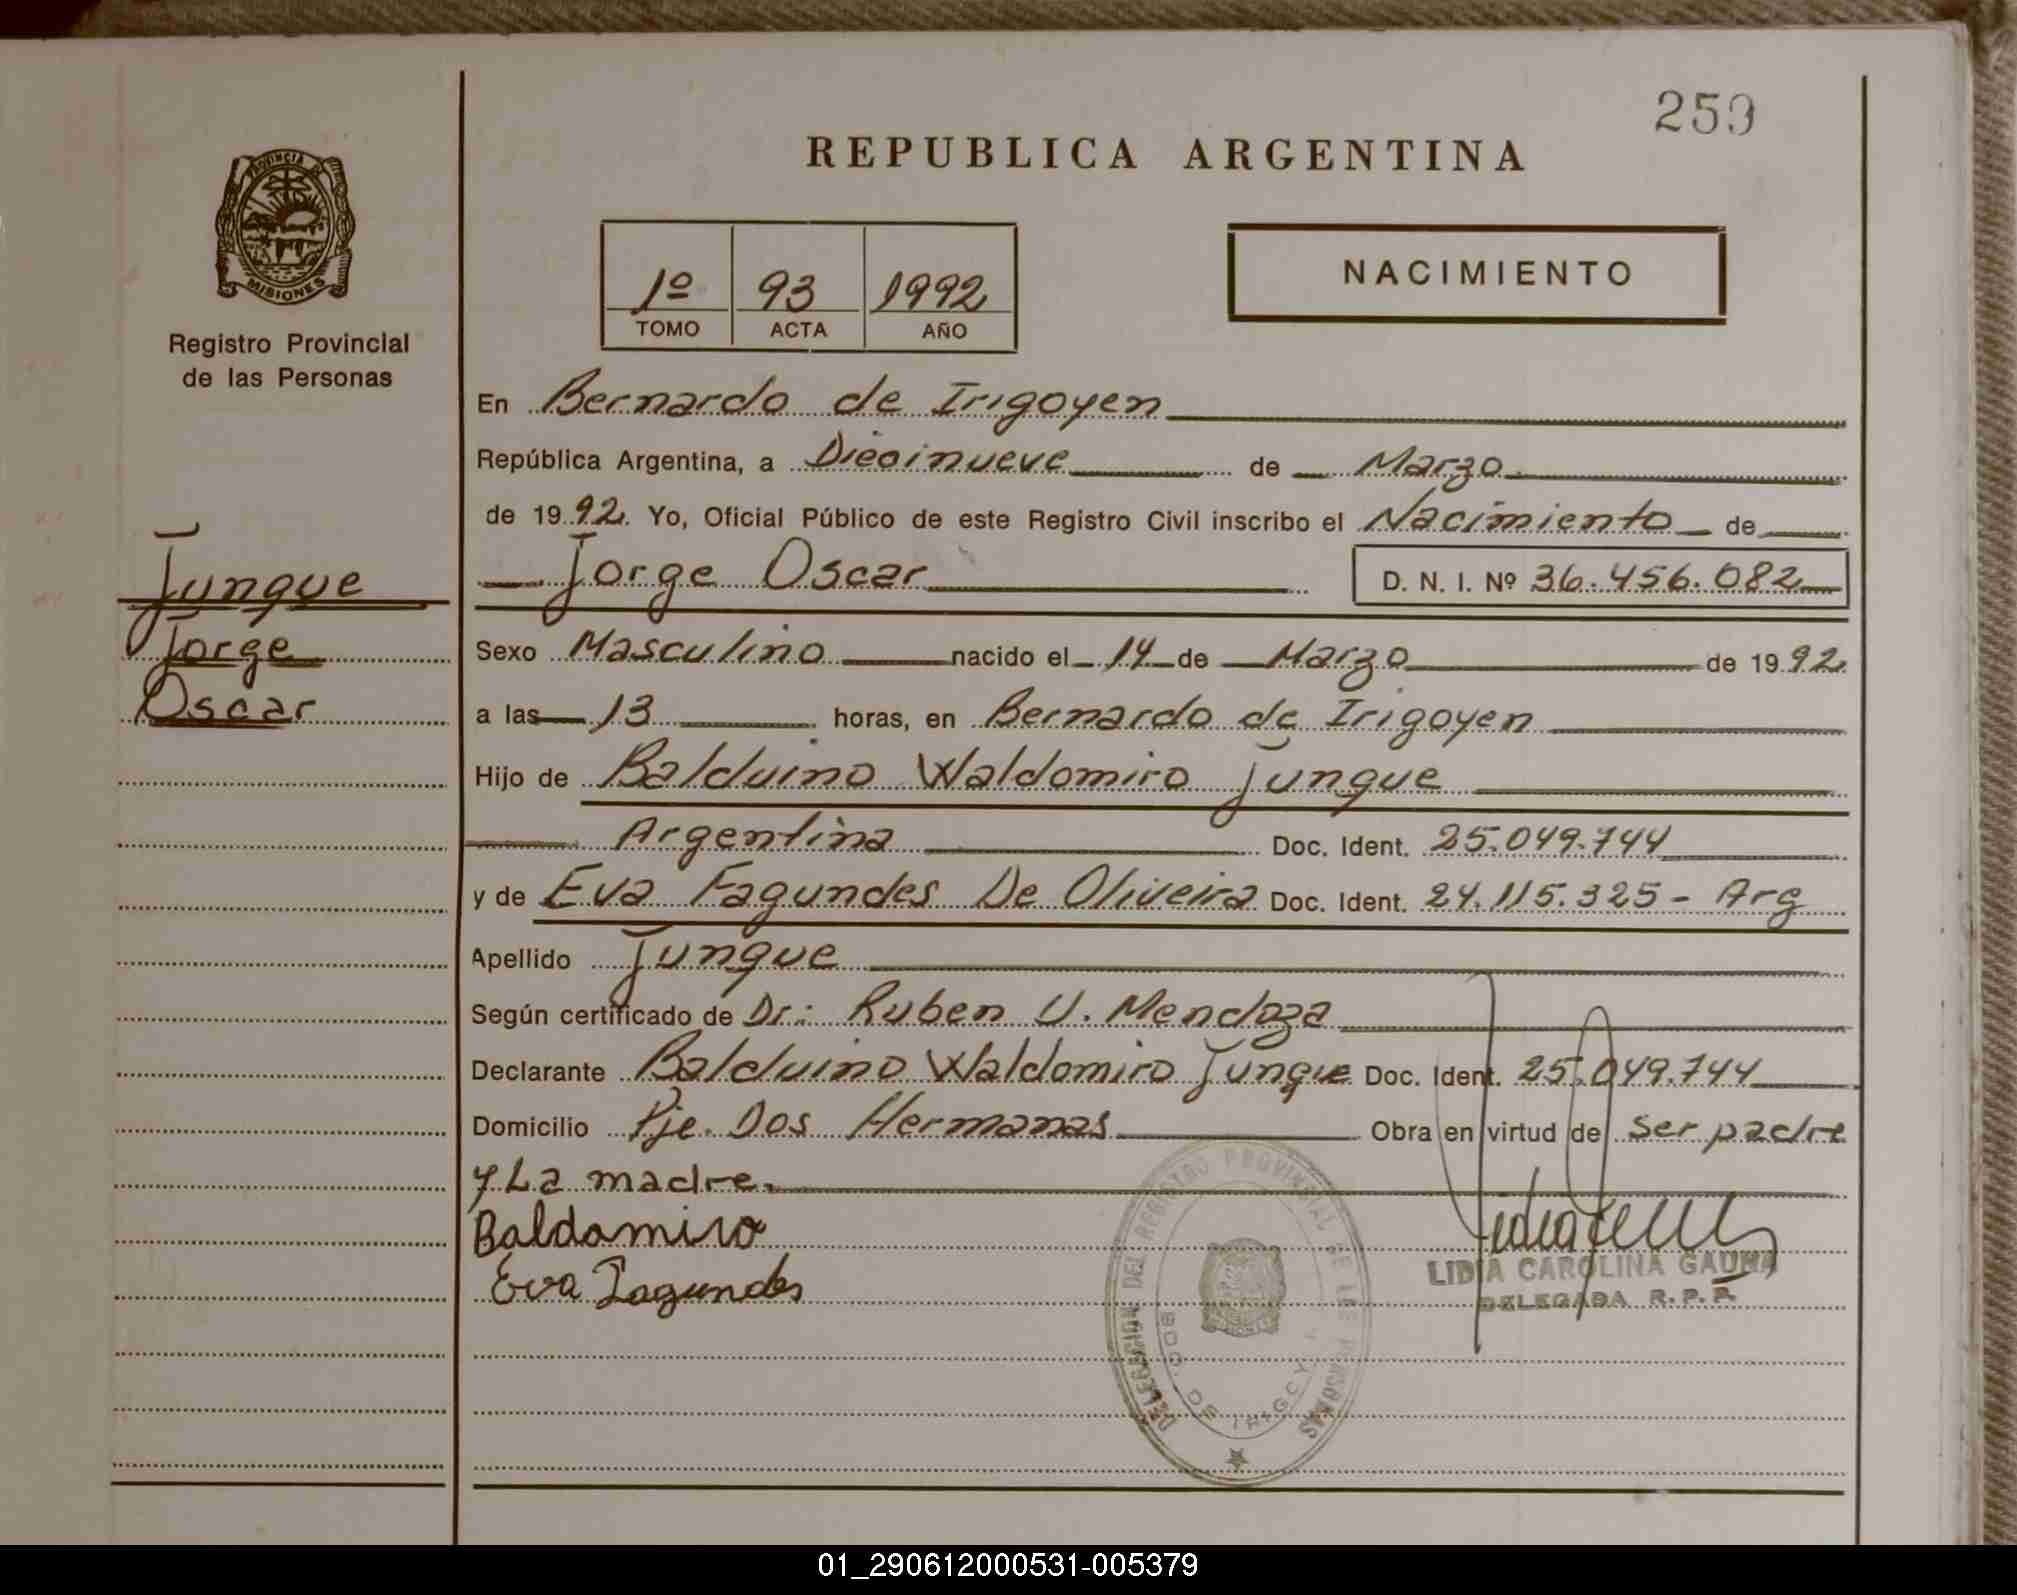 259
REPUBLICA ARGENTINA
PROVINCIA DE
MISIONES
Registro Provincial
de las Personas
1º 93 1992
TOMO ACTA AÑO
NACIMIENTO
En Bernardo de Irigoyen
República Argentina, a Diecinueve de Marzo
de 1992. Yo, Oficial Público de este Registro Civil inscribo el Nacimiento de
Jorge Oscar D. N. I. Nº 36.456.082
Jungue
Jorge
Oscar
Sexo Masculino nacido el 14 de Marzo de 1992
a las 13 horas, en Bernardo de Irigoyen
Hijo de Balduino Waldomiro Jungue
Argentina Doc. Ident. 25.049.744
y de Eva Fagundes De Oliveira Doc. Ident. 24.115.325 - Arg
Apellido Jungue
Según certificado de Dr.: Ruben U. Mendoza
Declarante Balduino Waldomiro Jungue Doc. Ident. 25.049.744
Domicilio Pje. Dos Hermanas Obra en virtud de ser padre
y La madre.
Baldamiro
Eva Fagundes
LIDIA CAROLINA GAUNA
DELEGADA R.P.P.
DELEGACION DEL REGISTRO PROVINCIAL DE LAS PERSONAS
DE IRIGOYEN
01_290612000531-005379